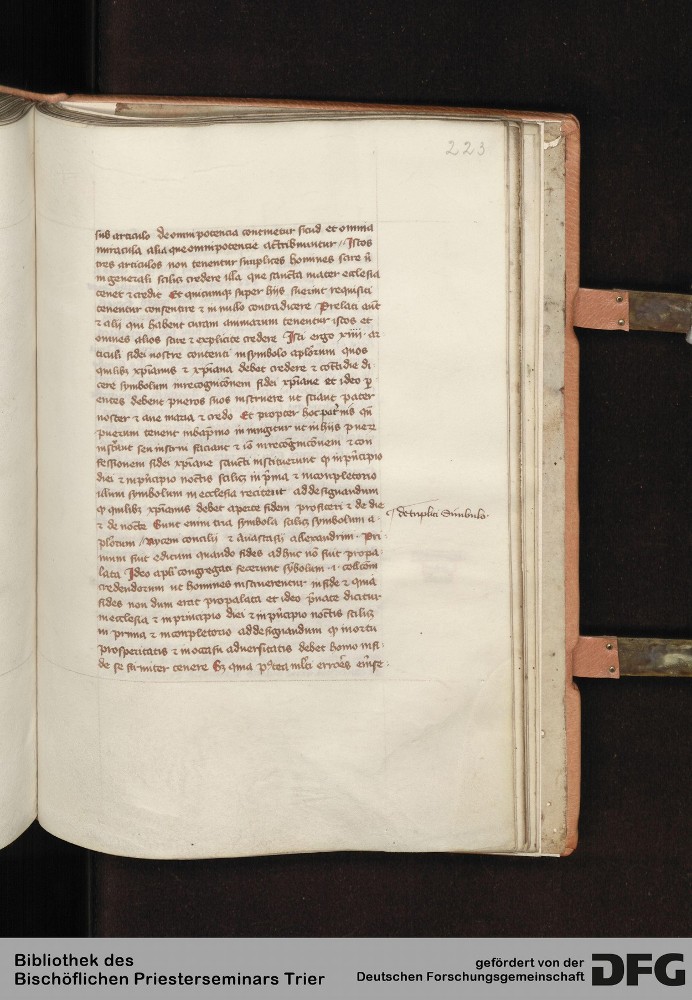 223
sub articulo de omnipotencia continetur sicud et omnia
miracula alia que omnipotencie attribuuntur // Istos
tres articulos non tenentur simplices homines scire nisi
in generali scilicet credere illa que sancta mater ecclesia
tenet et credit Et quicumque super hiis fuerint requisiti
tenentur consentire et in nullo contradicere Prelati aut
et alij qui habent curam animarum tenentur istos et
omnes alios scire et explicite credere Isti ergo xiiii ar
ticuli fidei nostre contenti in symbolo aplorum quos
quilibet xpianus et xpiana debet credere et cottidie di
cere symbolum in recognicionem fidei xpiane et ideo p
entes debent pueros suos instruere ut sciant pater
noster et aue maria et credo Et propter hoc patrinis qui
puerum tenent in baptismo iniungitur ut in hiis pueri
instruant seu instrui faciant et io in recognicionem et con
fessionem fidei xpiane sancti instituerunt quod in principio
diei et in principio noctis scilicet in prima et in completorio
illum symbolum in ecclesia recitent ad designandum
quod quilibet xpianus debet aperte fidem profiteri et de die
et de nocte Sunt enim tria symbola scilicet symbolum a
plorum / Nyceni concilij et Anastasij allexandrini Pri
mum fuit editum quando fides adhuc non fuit propa
lata Ideo apli congregati fecerunt symbolum .i. collcom
credendorum ut homines instruerentur in fide et quia
fides non dum erat propalata et ideo private dicitur
in ecclesia et in principio diei et in principio noctis scilicet
in prima et in completorio ad designandum quod in ortu
prosperitatis et in occasu aduersitatis debet homo in fi
de se firmiter tenere Sed quia postea multi errores
de triplici Simbulo
Bibliothek des
Bischöflichen Priesterseminars Trier
gefördert von der
Deutschen Forschungsgemeinschaft
DFG